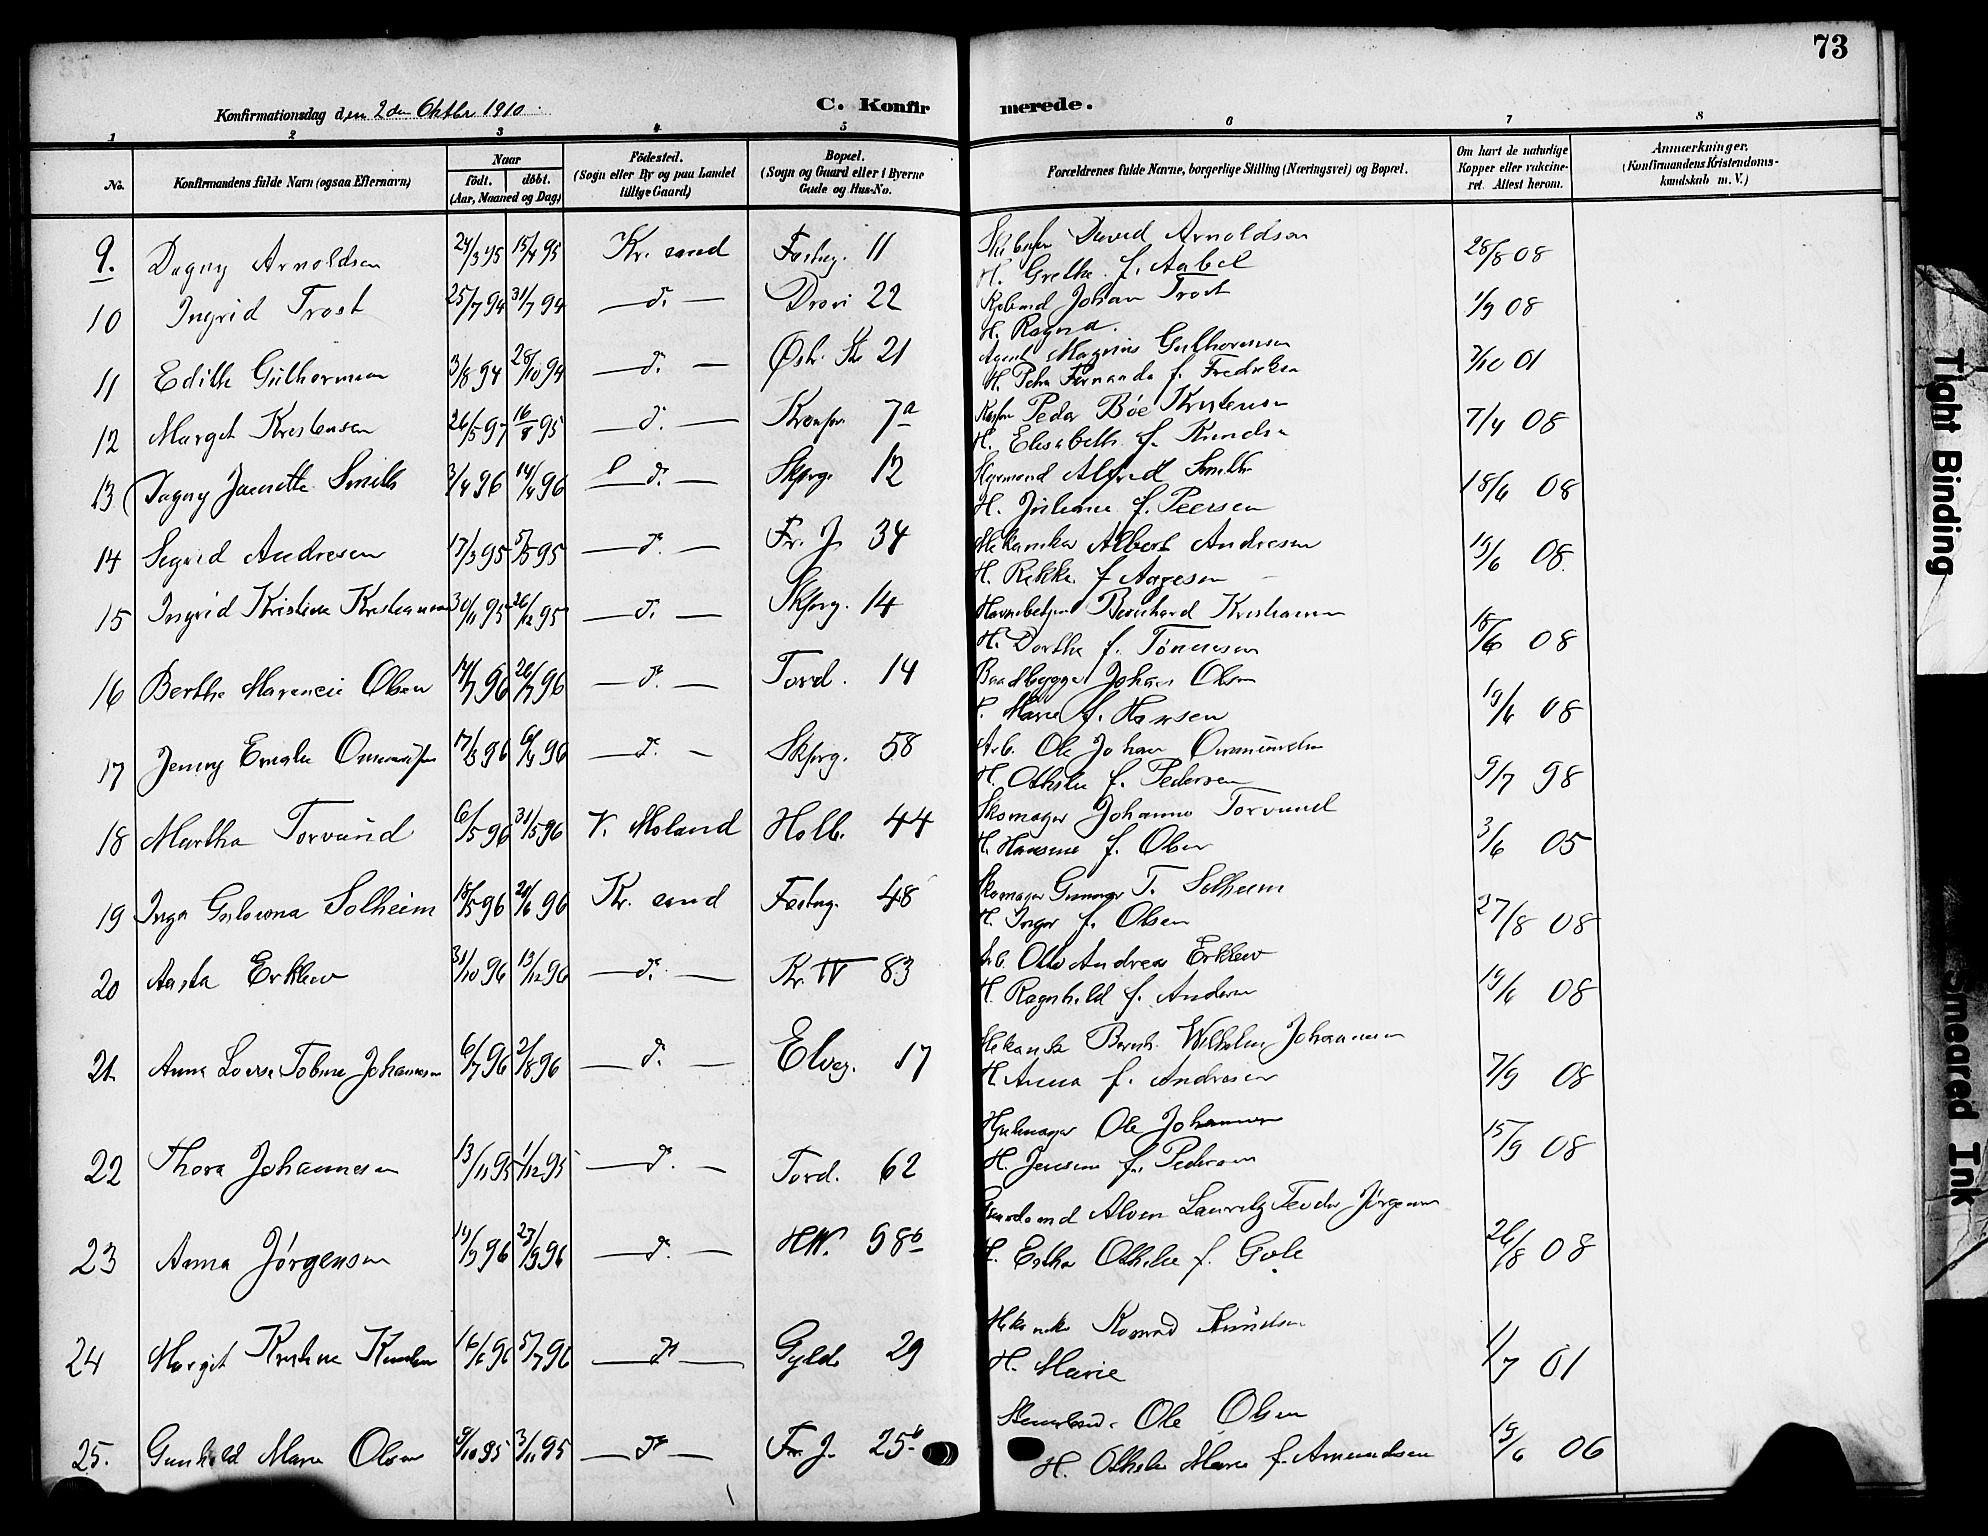 73
Konfirmationsdag den 2den Oktbr 1910
C. Konfirmerede.
1 2 3 4 5 6 7 8
No.
Konfirmandens fulde Navn (ogsaa Efternavn)
Naar
født. døbt.
(Aar, Maaned og Dag)
Fødested.
(Sogn eller By og paa Landet
tillige Gaard)
Bopæl.
(Sogn og Gaard eller i Byerne
Gade og Hus-No.
Forældrenes fulde Navne, borgerlige Stilling (Næringsvei) og Bopæl.
Om havt de naturlige
Kopper eller vakcine-
ret. Attest herom.
Anmærkninger.
(Konfirmandens Kristendoms-
kundskab m. V.)
9. Dagny Arnoldsen 24/3 95 15/4 95 Kr. sand Festng. 11 David Arnoldsen 28/8 08
H. Grethe f. Aabel
10 Ingrid Trost 25/7 94 31/7 94 — d. — Dron 22 Johan Trost 1/9 08
H. Ragna.
11 Edith Guthormsen 3/8 94 28/10 94 — d. — Østr. Str 21 Agent Magnus Guthormsen 7/10 01
H. Petra Fernanda f. Fredriksen
12 Marget Kristensen 26/5 97 16/8 95 — d. — Kronpr. 7a Peder Bøe Kristensen 7/4 08
H. Elisabeth f. Knudsen
13 Dagny Jaenette Smith 3/4 96 14/4 96 — d. — Skprg. 12 Styrmand Alfred Smith 18/6 08
H. Juliane f. Peersen
14 Sigrid Andresen 17/3 95 5/5 95 — d. — Fr. J. 34 Mekaniker Albert Andresen 19/6 08
H. Rikke f. Aagesen
15 Ingrid Kristine Kristiansen 30/11 95 26/12 95 — d. — Skprg. 14 Havnebetjent Bernhard Kristiansen 18/6 08
H. Dorthe f. Tønnesen
16 Berthe Marencie Olsen 14/7 96 26/7 96 — d. — Tord. 14 Baadbygger Johan Olsen 19/6 08
H. Marie f. Hansen
17 Jenny Emalie Ommundsen 17/3 96 6/4 96 — d. — Skprg. 58 Arb. Ole Johan Ommundsen 9/7 98
H. Othilie f. Pedersen
18 Martha Torvund 6/5 96 31/5 96 V. Moland Holb. 44 Skomager Johannes Torvund 3/6 05
H. Hansine f. Olsen
19 Inga Gulovna Solheim 18/5 96 24/6 96 Kr. sand Festng. 48 Skomager Gunnar T. Solheim 27/8 08
H. Inger f. Olsen
20 Aasta Erklev 31/10 96 13/12 96 — d. — Kr. IV 83 Arb. Otto Andreas Erklev 19/6 08
H. Ragnhild f. Andersen
21. Anna Lovise Tobine Johannesen 6/7 96 2/8 96 — d. — Elveg. 17 Mekanik. Bernh. Wilhelm Johannesen 7/9 08
H. Anna f. Andresen
22 Thora Johannesen 13/11 95 1/12 95 — d. — Tord. 62 Hjulmager Ole Johannesen 15/9 08
H. Jensine f. Pedersen
23 Anna Jørgensen 14/3 96 23/3 96 — d. — H.W. 98b Alven Lauritz Teodor Jørgensen 26/8 08
H. Ertha Othilie f. Gole
24 Margit Kristine Knudsen 16/6 96 5/7 96 — d. — Gyld. 29 Konrad Knudsen 1/7 01
H. Marie
25. Gunhild Marie Olsen 9/10 95 3/11 95 — d. — Fr. J. 25b Ole Olsen 19/6 06
H. Othilie Marie f. Amundsen
Tight Binding
Smeared Ink